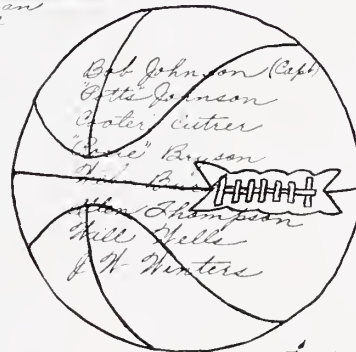 an
Bob Johnson (Capt)
"Potts" Johnson
Cooter Cutrer
Bryson
Allen Thompson
Will Wells
J W Winters